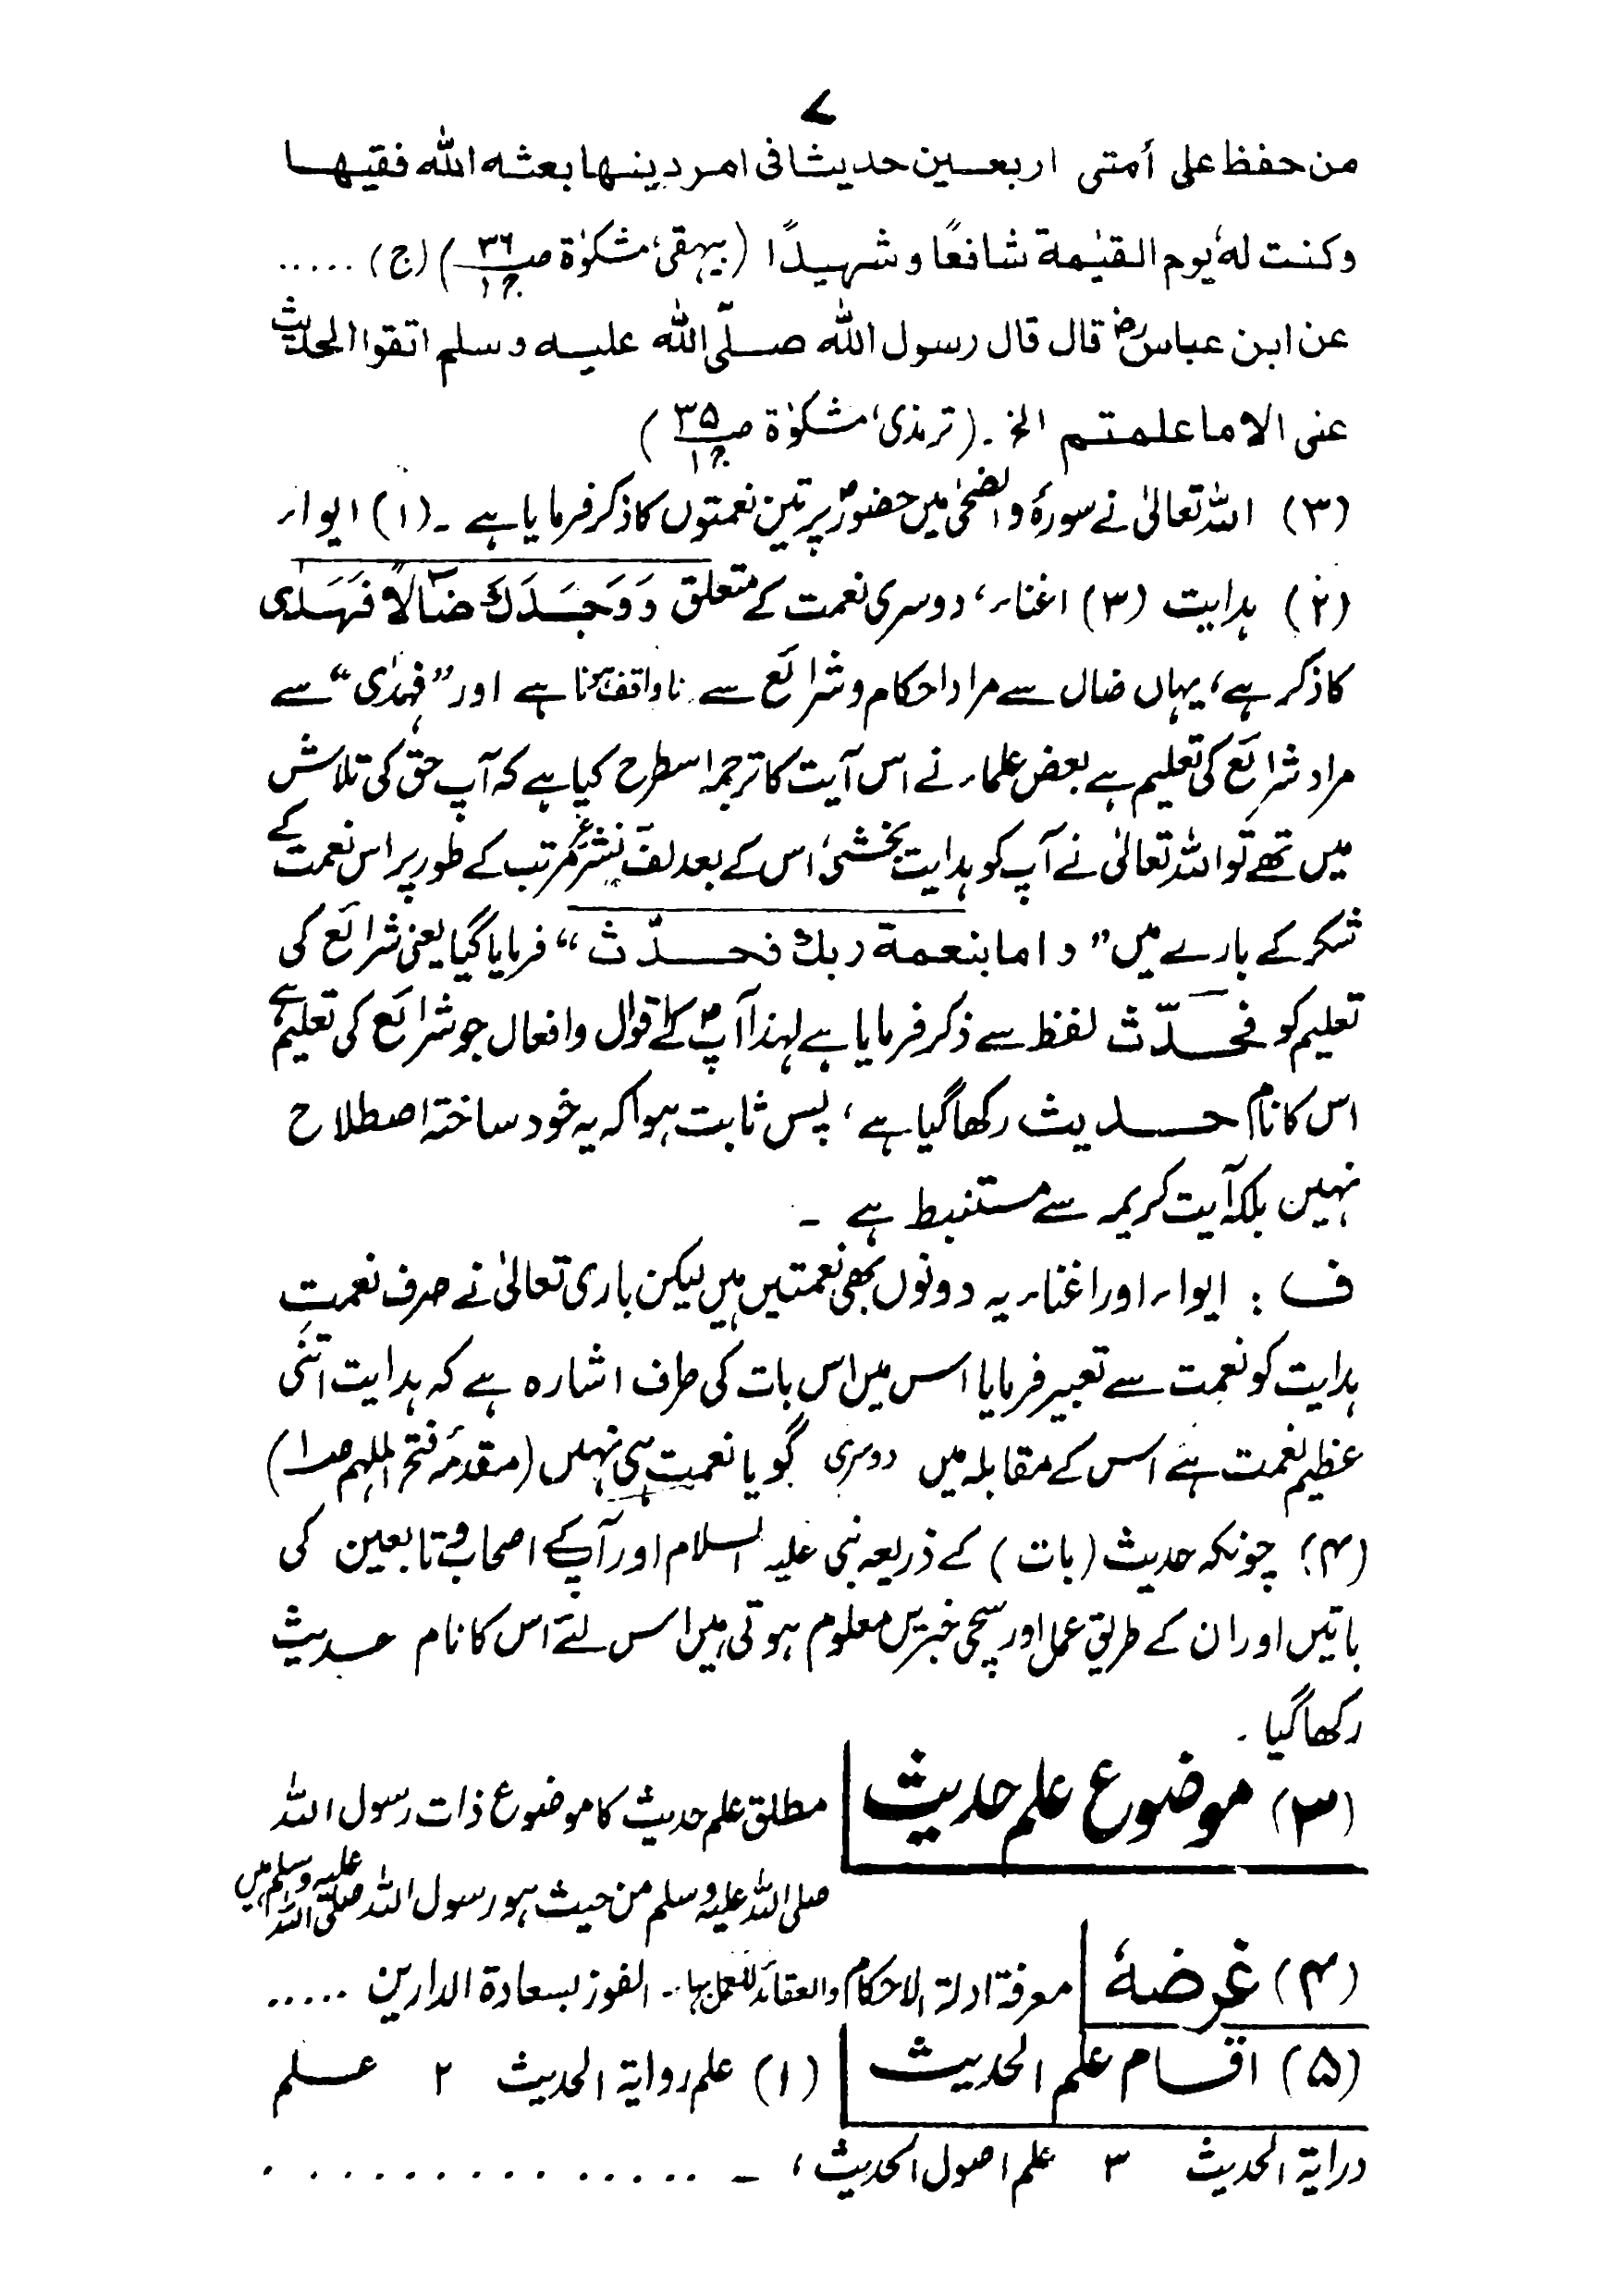 ۷
من حفظ علی أمتی اربعین حدیثا فی امر دینها بعثه الله فقیها
وکنت لهٗ یوم القیٰمة شافعًا وشهیدًا (بیہقی، مشکوٰۃ ص ۳۶ ج۱) (ج) .....
عن ابن عباسؓ قال قال رسول الله صلّی الله علیه وسلم اتقوا الحدیث
عنی الا ما علمتم الخ ۔ (ترمذی، مشکوٰۃ ص ۳۵ ج۱)
(۳) اللہ تعالیٰ نے سورۂ والضحیٰ میں حضورؐ پر تین نعمتوں کا ذکر فرمایا ہے ۔ (۱) ایواء
(۲) ہدایت (۳) اغناء، دوسری نعمت کے متعلق وَوَجَدَكَ ضَآلًّا فَهَدٰى
کا ذکر ہے، یہاں ضال سے مراد احکام وشرائع سے ناواقف ہونا ہے اور ”فہدٰی“ سے
مراد شرائع کی تعلیم ہے بعض علماء نے اس آیت کا ترجمہ اسطرح کیا ہے کہ آپ حق کی تلاش
میں تھے تو اللہ تعالیٰ نے آپ کو ہدایت بخشی، اس کے بعد لف نشر غیر مرتب کے طور پر اس نعمت کے
شکر کے بارے میں ” واما بنعمة ربك فحدّث “ فرمایا گیا یعنی شرائع کی
تعلیم کو فحدّث لفظ سے ذکر فرمایا ہے لہذا آپؐ کے اقوال وافعال جو شرائع کی تعلیم ہے
اس کا نام حدیث رکھا گیا ہے، پس ثابت ہوا کہ یہ خود ساختہ اصطلاح
نہیں بلکہ آیت کریمہ سے مستنبط ہے ۔
ف : ایواء اور اغناء یہ دونوں بھی نعمتیں ہیں لیکن باری تعالیٰ نے صرف نعمتِ
ہدایت کو نعمت سے تعبیر فرمایا اس میں اس بات کی طرف اشارہ ہے کہ ہدایت اتنی
عظیم نعمت ہے اس کے مقابلہ میں دوسری گویا نعمت ہی نہیں (مقدمۂ فتح الملہم ص۱)
(۴) چونکہ حدیث (بات) کے ذریعہ نبی علیہ السلام اور آپ کے اصحاب و تابعین کی
باتیں اور ان کے طریق عمل اور سچی خبریں معلوم ہوتی ہیں اس لئے اس کا نام حدیث
رکھا گیا ۔
(۳) موضوع علم حدیث مطلق علم حدیث کا موضوع ذات رسول اللہ
صلی اللہ علیہ وسلم من حیث ہو رسول اللہ صلی اللہ علیہ وسلم ہیں
(۴) غرضهٗ معرفة ادلة الاحکام والعقائد للعمل بہا ۔ الفوز بسعادة الدارین .....
(۵) اقسام علم الحدیث (۱) علم روایة الحدیث ۲ علم
درایة الحدیث ۳ علم اصول الحدیث، ۔ ...............